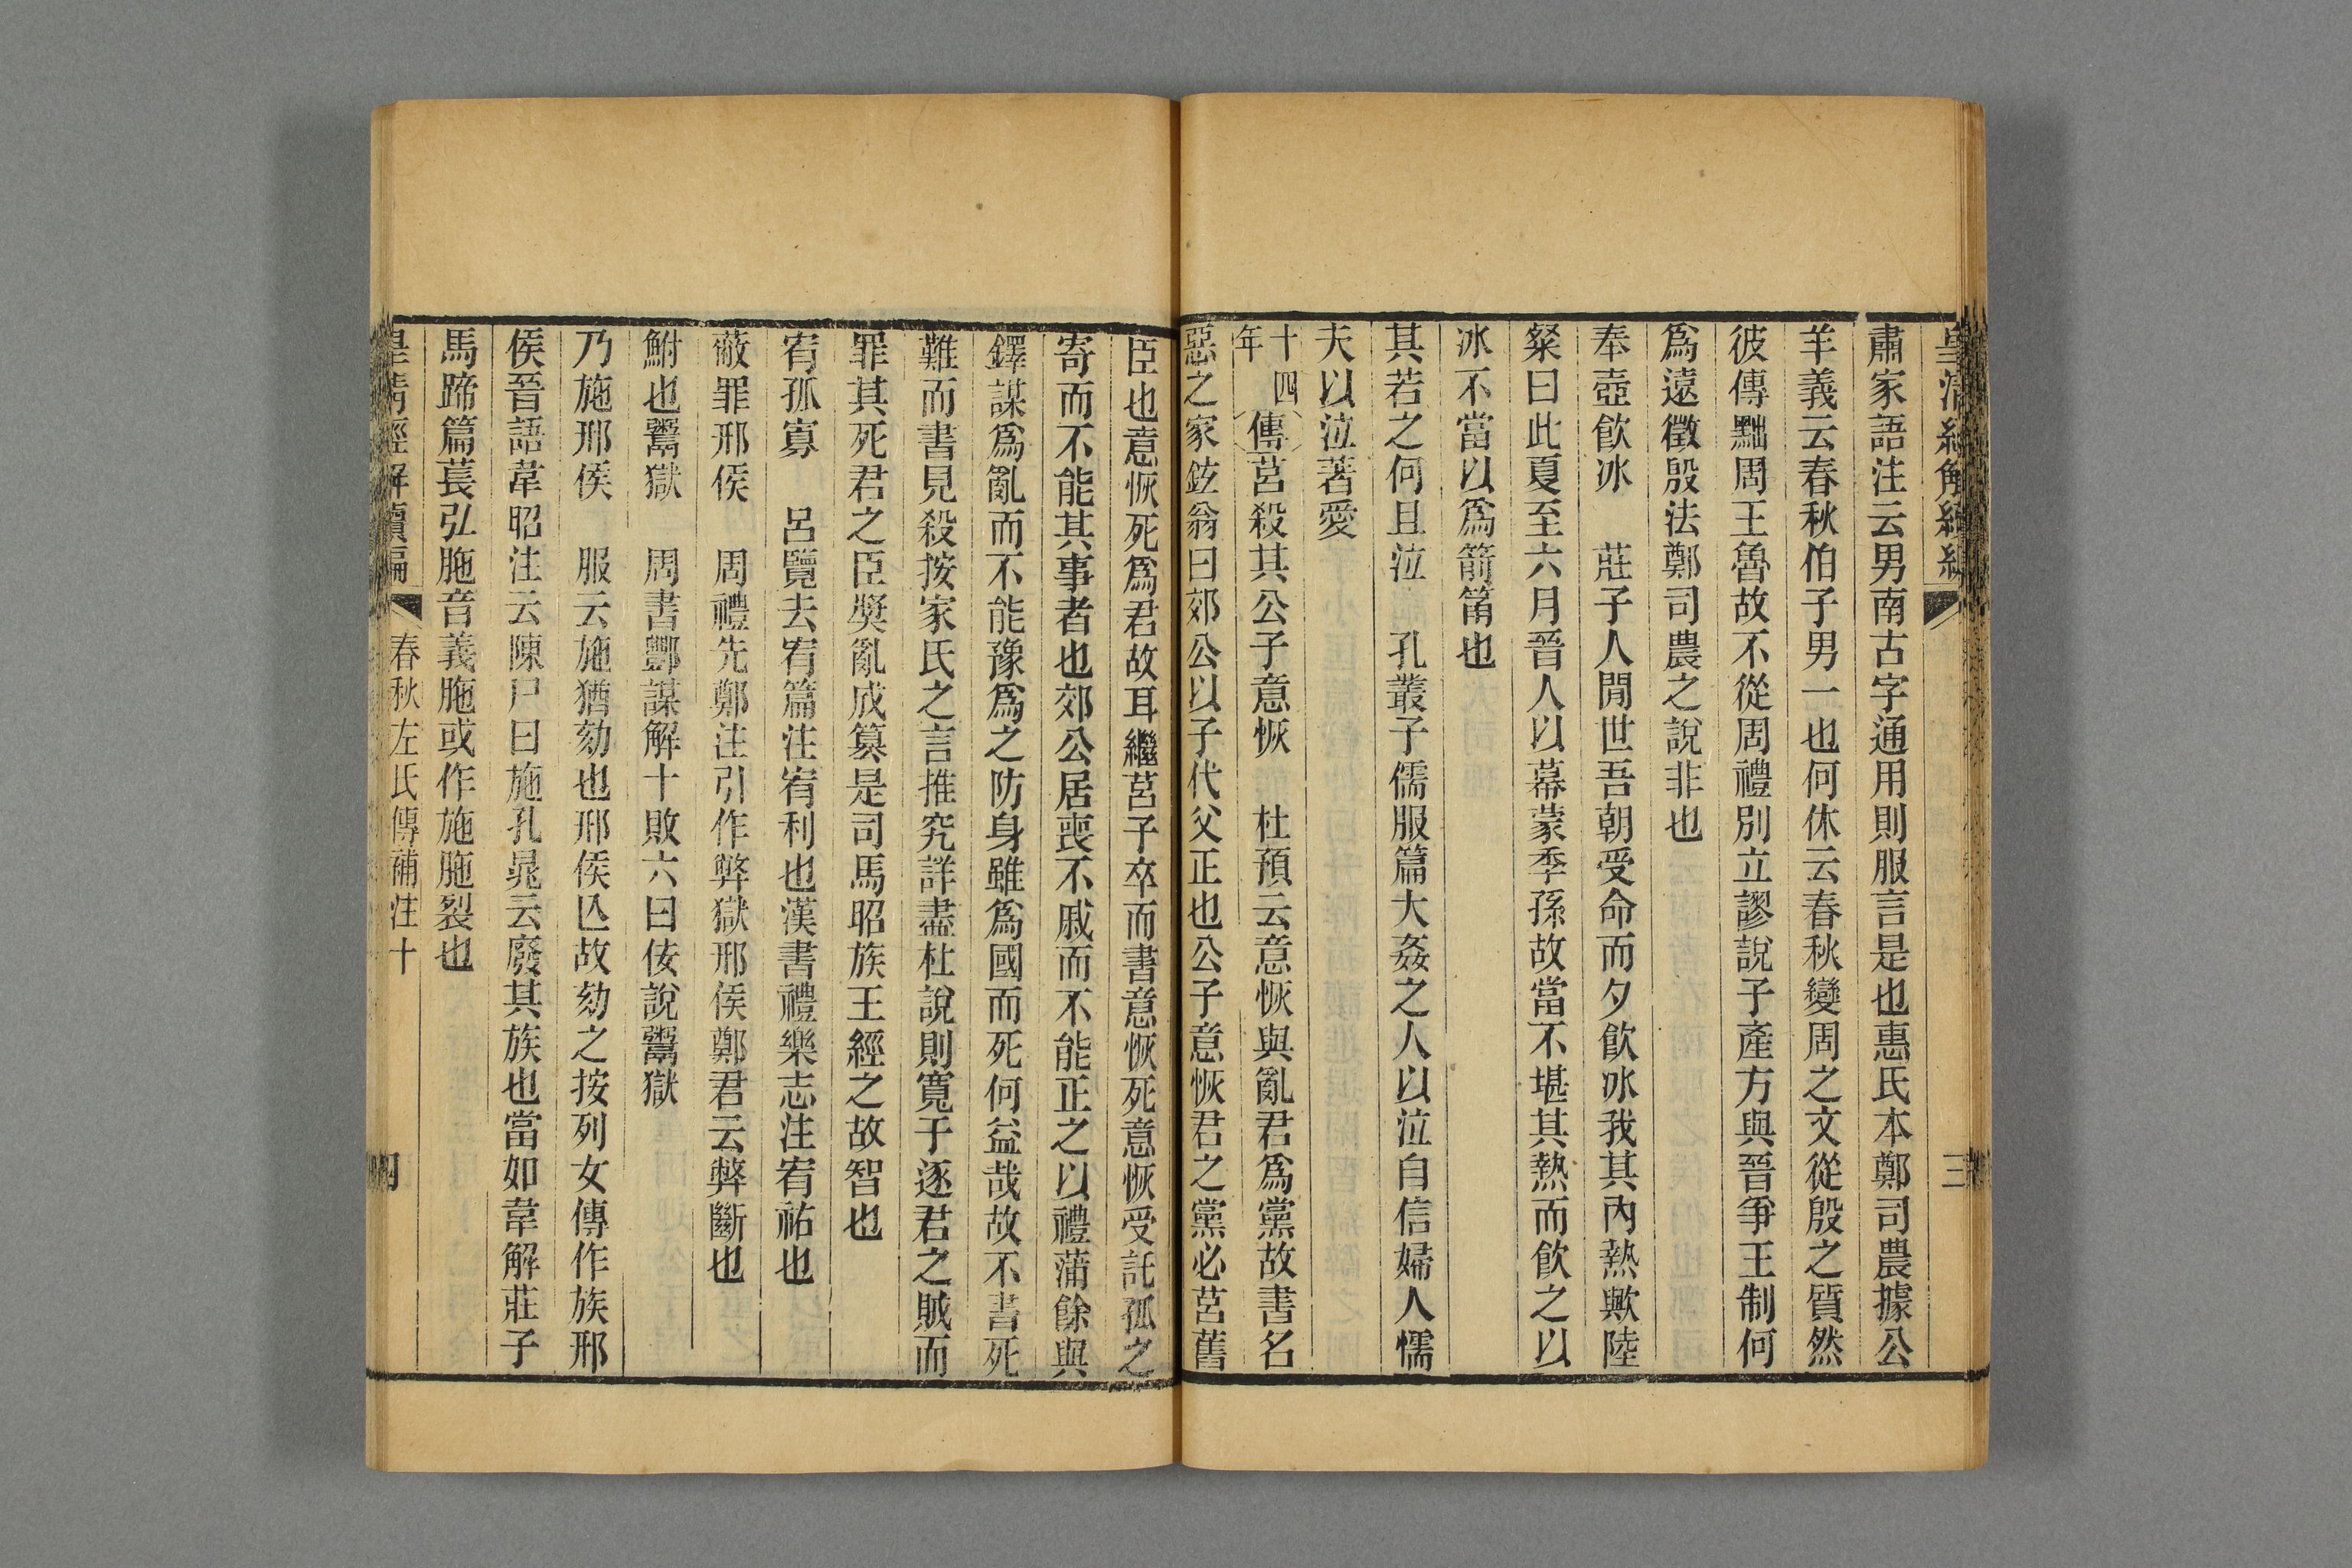 皇清經解續編
三
肅家語注云男南古字通用則服言是也惠氏本鄭司農據公
羊義云春秋伯子男一也何休云春秋變周之文從殷之質然
彼傳黜周王魯故不從周禮別立謬說子產方與晉爭王制何
爲遠徵殷法鄭司農之說非也
奉壺飮冰　莊子人閒世吾朝受命而夕飮冰我其內熱歟陸
粲曰此夏至六月晉人以幕蒙季孫故當不堪其熱而飮之以
冰不當以爲箭筩也
其若之何且泣　孔叢子儒服篇大姦之人以泣自信婦人懦
夫以泣著愛
十四年傳莒殺其公子意恢　杜預云意恢與亂君爲黨故書名
惡之家鉉翁曰郊公以子代父正也公子意恢君之黨必莒舊
臣也意恢死爲君故耳繼莒子卒而書意恢死意恢受託孤之
寄而不能其事者也郊公居喪不戚而不能正之以禮蒲餘與
鐸謀爲亂而不能豫爲之防身雖爲國而死何益哉故不書死
難而書見殺按家氏之言推究詳盡杜說則寬于逐君之賊而
罪其死君之臣獎亂成篡是司馬昭族王經之故智也
宥孤寡　呂覽去宥篇注宥利也漢書禮樂志注宥祐也
蔽罪邢侯　周禮先鄭注引作弊獄邢侯鄭君云弊斷也
鮒也鬻獄　周書酆謀解十敗六曰佞說鬻獄
乃施邢侯　服云施猶劾也邢侯亾故劾之按列女傳作族邢
侯晉語韋昭注云陳尸曰施孔晁云廢其族也當如韋解莊子
馬蹄篇萇弘胣音義胣或作施胣裂也
皇清經解續編
春秋左氏傳補注十
四